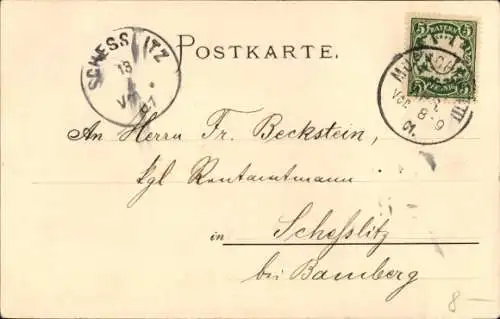 POSTKARTE.
5 BAYERN 5
SCHESSLITZ
13
MÜNCHEN
Vor. 8-9
01.
An Herrn Fr. Beckstein,
kgl Rentamtmann
in Schesslitz
bei Bamberg
8-